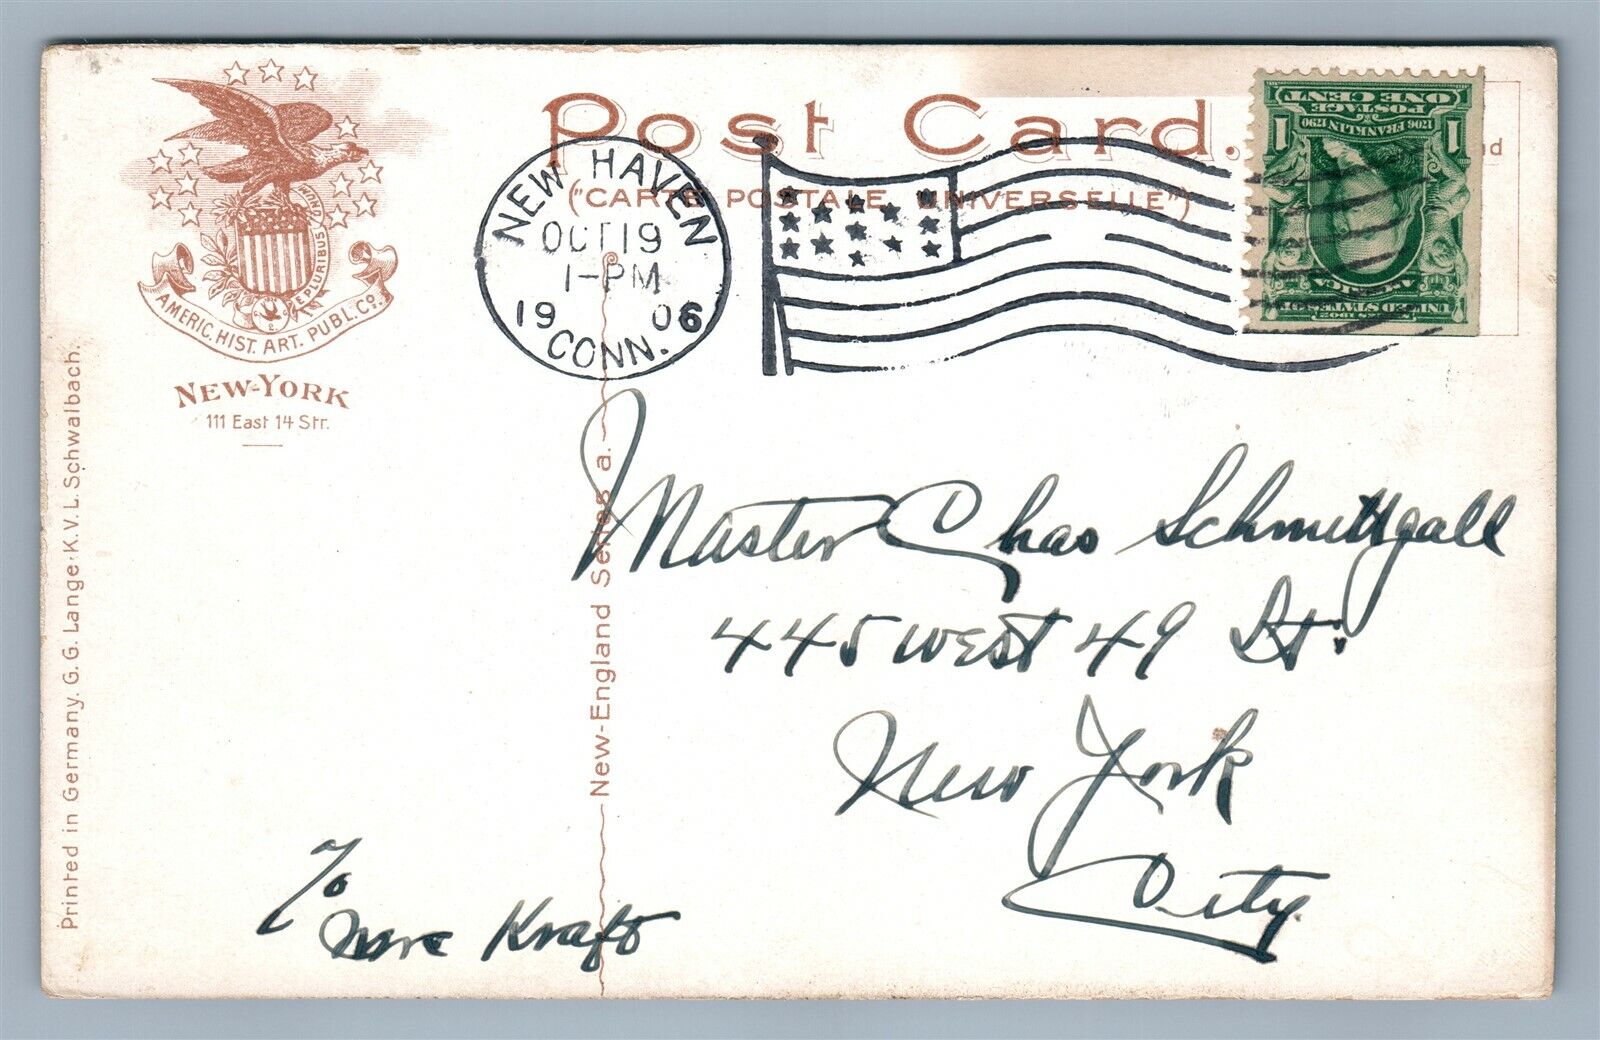 Post Card.
("CARTE POSTALE UNIVERSELLE")
E PLURIBUS UNUM
AMERIC. HIST. ART. PUBL. Co.
NEW-YORK
111 East 14 Str.
Printed in Germany. G. G. Lange·K. V. L. Schwalbach.
New-England Series a.
NEW HAVEN
OCT 19
1-PM
19 06
CONN.
1 ONE CENT 1
POSTAGE
1706 FRANKLIN 1790
SERIES 1902
UNITED STATES OF
AMERICA
Master Chas Schmittgall
445 West 49 St.
New York
City.
To
Kraft